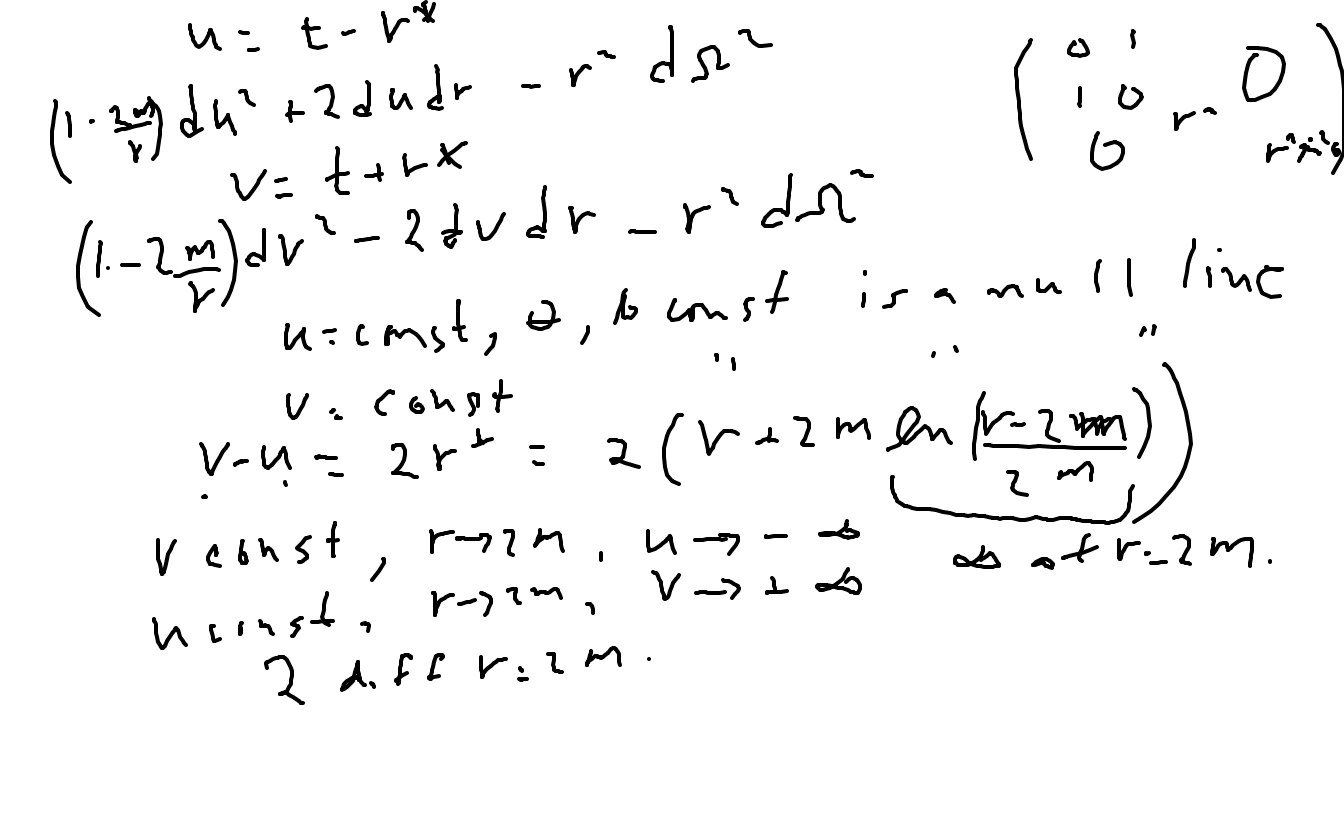 u = t - r*
(1 - 2m/r) du² + 2 du dr - r² dΩ²
( 0 1
1 0 r² 0
0 )
v = t + r*
(1 - 2m/r) dv² - 2 dv dr - r² dΩ²
u = const, θ, φ const is a null line
v = const " " "
v - u = 2r* = 2(r + 2m ln((r - 2m)/2m))
v const, r → 2m, u → - ∞ ∞ at r = 2m.
u const, r → 2m, v → + ∞
2 diff r = 2m.